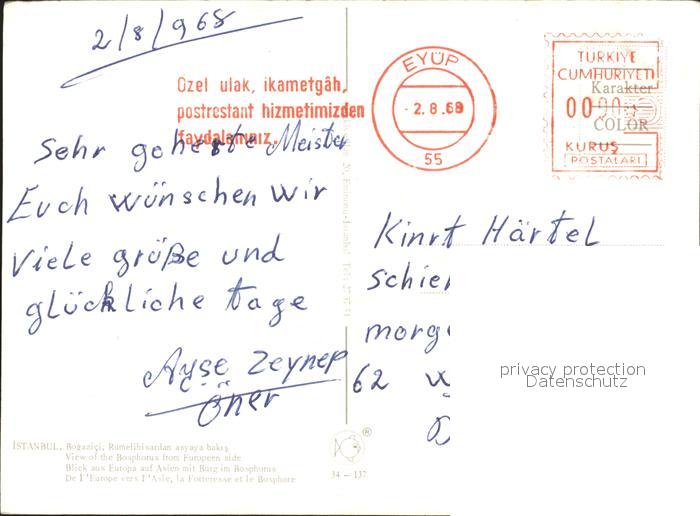 2/8/968
Özel ulak, ikametgâh,
postrestant hizmetimizden
faydalanınız.
EYÜP
- 2.8.68
55
TÜRKİYE
CUMHURİYETİ
Karakter
COLOR
KURUŞ
POSTALARI
Sehr geherte Meister
Euch wünschen wir
Viele größe und
glückliche tage
Ayşe Zeynep
Öner
Kinrt Härtel
schier
morg
62 W
privacy protection
Datenschutz
İSTANBUL, Boğaziçi, Rumelihisardan asyaya bakış
View of the Bosphorus from Europeen side
Blick aus Europa auf Asien mit Burg im Bosphorus
De l'Europe vers l'Asie, la Forteresse et le Bosphore
34 - 137
®